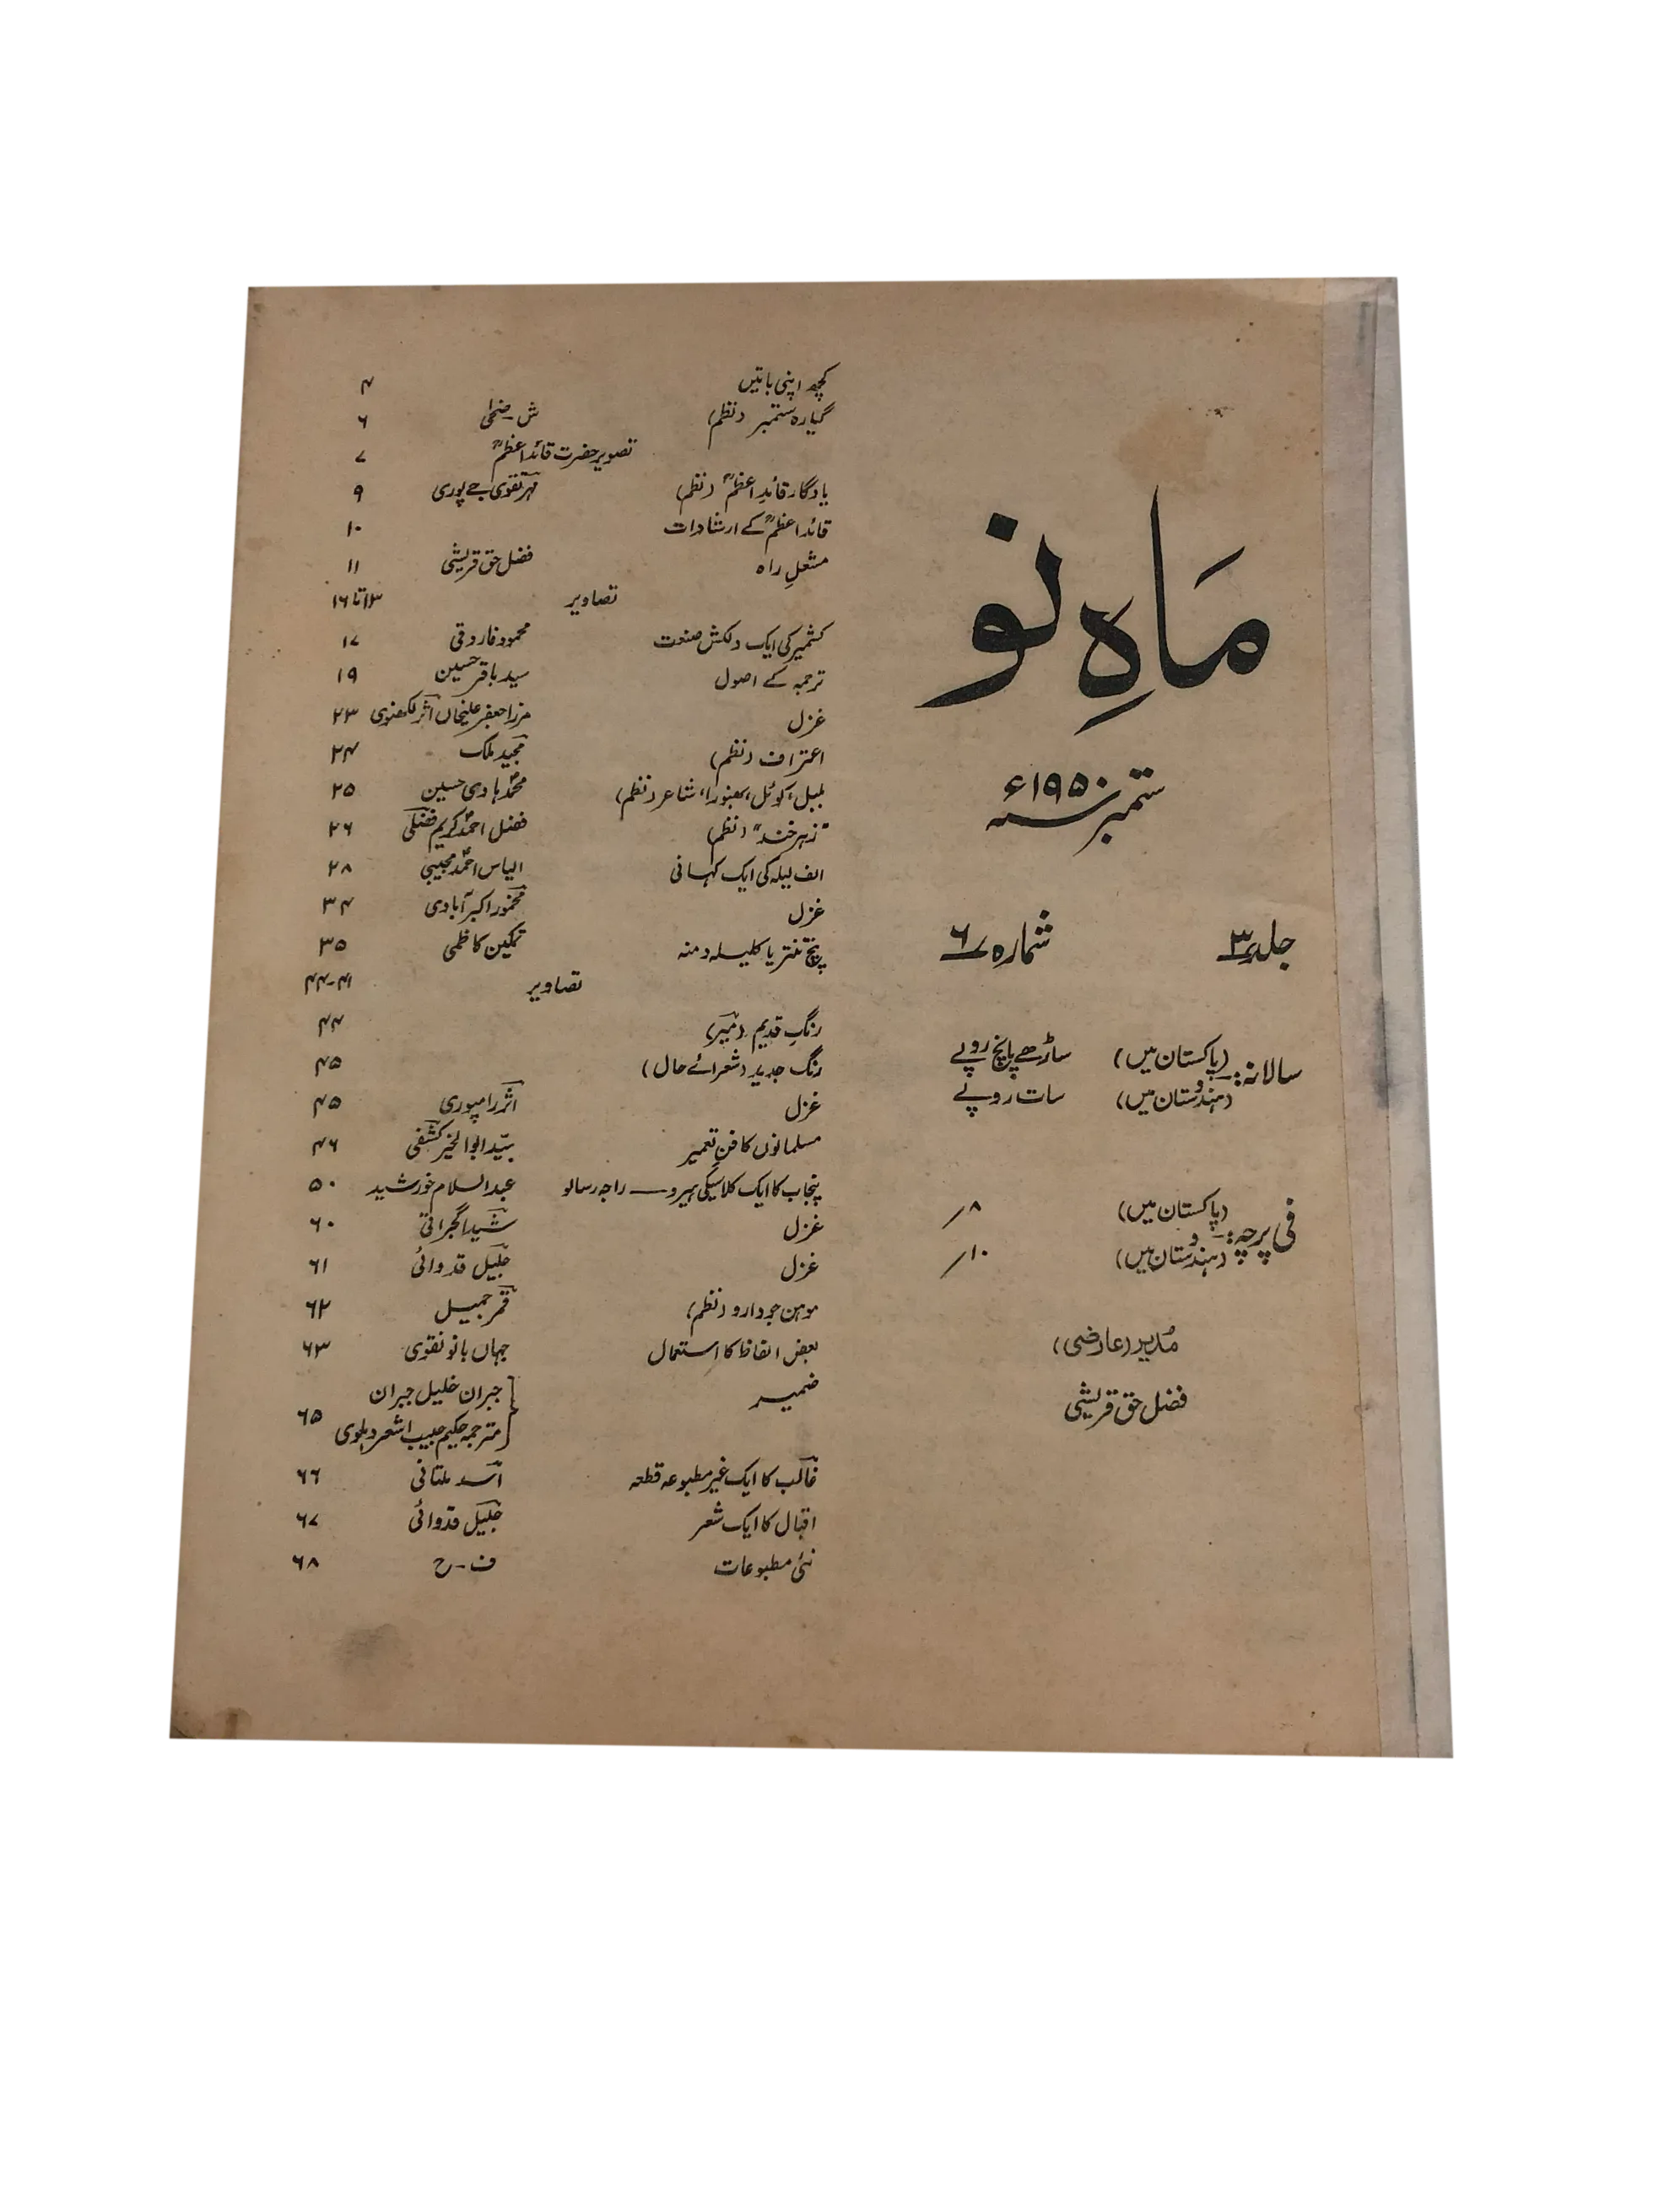 ماہِ نو
ستمبر سنہ ۱۹۵۰ء
جلد ۳ شمارہ ۶
سالانہ:- (پاکستان میں) ساڑھے پانچ روپے
(ہندوستان میں) سات روپے
فی پرچہ:- (پاکستان میں) ۸/
(ہندوستان میں) ۱۰/
مُدیر (عارضی)
فضل حق قریشی
کچھ اپنی باتیں ۴
گیارہ ستمبر (نظم) ش۔ضحیٰ ۶
تصویر حضرت قائد اعظمؒ ۷
یادگار قائدِ اعظمؒ (نظم) مہر تقوی جے پوری ۹
قائد اعظمؒ کے ارشادات ۱۰
مشعلِ راہ فضل حق قریشی ۱۱
تصاویر ۱۳ تا ۱۶
کشمیر کی ایک دلکش صنعت محمود فاروقی ۱۷
ترجمہ کے اصول سید باقر حسین ۱۹
غزل مرزا جعفر علیخاں اثر لکھنوی ۲۳
اعتراف (نظم) مجید ملک ۲۴
بلبل، کوئل، بھنورا، شاعر (نظم) محمد ہادی حسین ۲۵
"زہر خند" (نظم) فضل احمد کریم فضلی ۲۶
الف لیلہ کی ایک کہانی الیاس احمد مجیبی ۲۸
غزل مخمور اکبر آبادی ۳۴
پنچ تنتر یا کلیلہ دمنہ تمکین کاظمی ۳۵
تصاویر ۴۱-۴۴
رنگِ قدیم (میر) ۴۴
رنگ جدید (شعرائے حال) ۴۵
غزل اثر رامپوری ۴۵
مسلمانوں کا فنِ تعمیر سیّد ابوالخیر کشفی ۴۶
پنجاب کا ایک کلاسیکی ہیرو — راجہ رسالو عبدالسلام خورشید ۵۰
غزل شیدا گجراتی ۶۰
غزل جلیل قدوائی ۶۱
موہن جو دارو (نظم) قمر جمیل ۶۲
بعض الفاظ کا استعمال جہاں بانو نقوی ۶۳
ضمیر جبران خلیل جبران
مترجمہ حکیم حبیب اشعر دہلوی ۶۵
غالب کا ایک غیر مطبوعہ قطعہ اسد ملتانی ۶۶
اقبال کا ایک شعر جلیل قدوائی ۶۷
نئی مطبوعات ف۔ح ۶۸